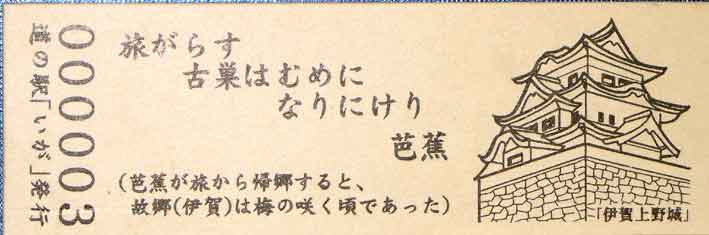 旅がらす
古巣はむめに
なりにけり
芭蕉
(芭蕉が旅から帰郷すると、
故郷(伊賀)は梅の咲く頃であった)
「伊賀上野城」
000003
道の駅「いが」発行